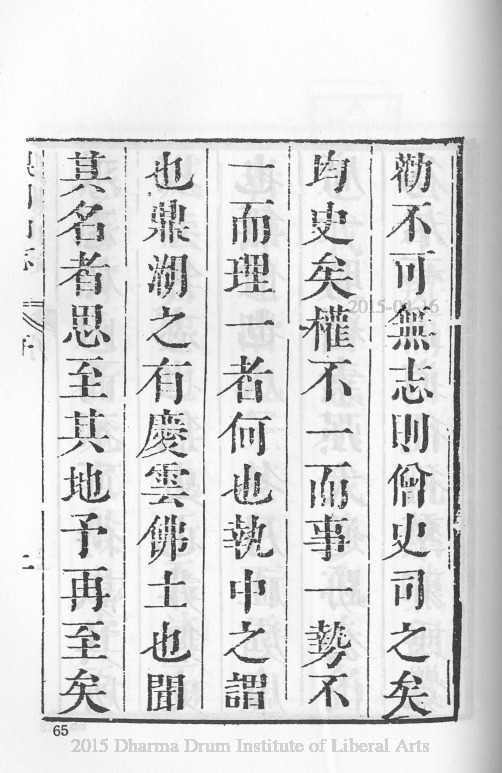 勸不可無志則僧史司之矣
均史矣權不一而事一勢不
一而理一者何也執中之謂
也鼎湖之有慶雲佛土也聞
其名者思至其地予再至矣
65
2015-04-16
2015 Dharma Drum Institute of Liberal Arts